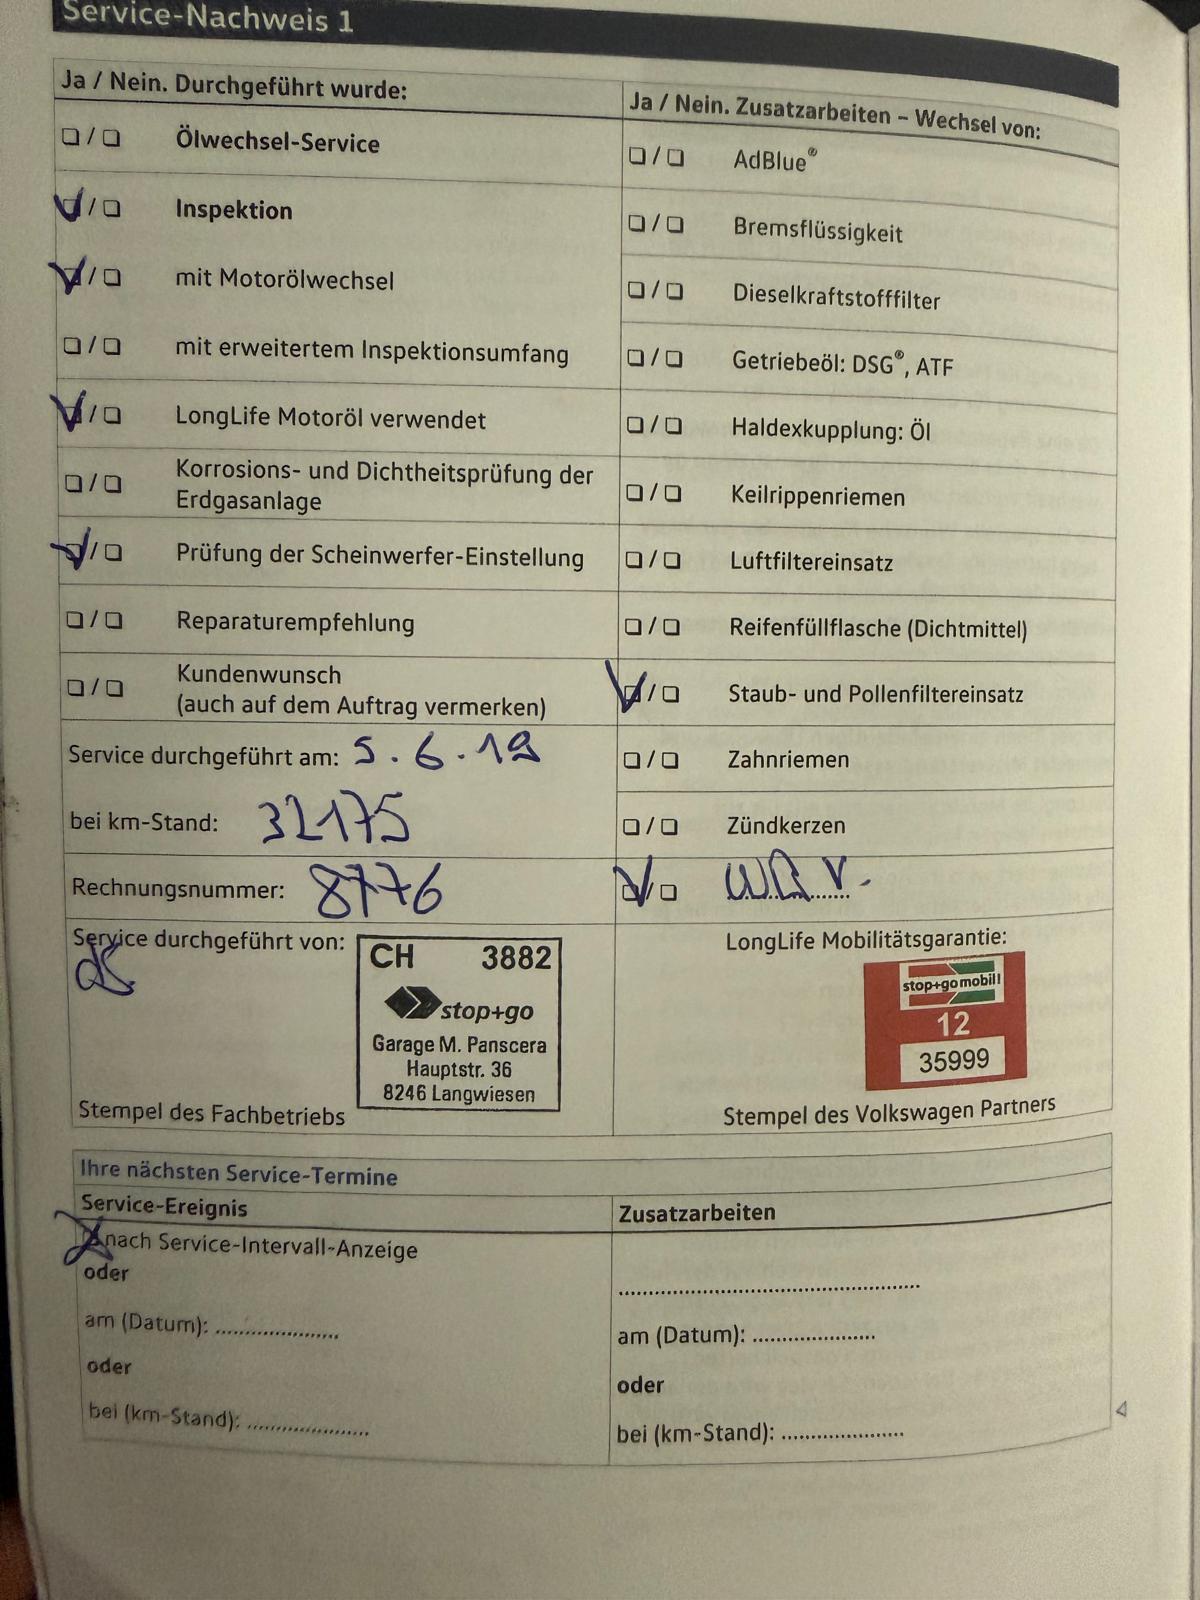 Service-Nachweis 1
Ja / Nein. Durchgeführt wurde:
❏ / ❏ Ölwechsel-Service
❏ / ❏ Inspektion
❏ / ❏ mit Motorölwechsel
❏ / ❏ mit erweitertem Inspektionsumfang
❏ / ❏ LongLife Motoröl verwendet
❏ / ❏ Korrosions- und Dichtheitsprüfung der
Erdgasanlage
❏ / ❏ Prüfung der Scheinwerfer-Einstellung
❏ / ❏ Reparaturempfehlung
❏ / ❏ Kundenwunsch
(auch auf dem Auftrag vermerken)
Service durchgeführt am: 5.6.19
bei km-Stand: 32175
Rechnungsnummer: 8776
Service durchgeführt von:
CH 3882
stop+go
Garage M. Panscera
Hauptstr. 36
8246 Langwiesen
Stempel des Fachbetriebs
Ja / Nein. Zusatzarbeiten – Wechsel von:
❏ / ❏ AdBlue®
❏ / ❏ Bremsflüssigkeit
❏ / ❏ Dieselkraftstofffilter
❏ / ❏ Getriebeöl: DSG®, ATF
❏ / ❏ Haldexkupplung: Öl
❏ / ❏ Keilrippenriemen
❏ / ❏ Luftfiltereinsatz
❏ / ❏ Reifenfüllflasche (Dichtmittel)
❏ / ❏ Staub- und Pollenfiltereinsatz
❏ / ❏ Zahnriemen
❏ / ❏ Zündkerzen
❏ / ❏
LongLife Mobilitätsgarantie:
stop+go mobil!
12
35999
Stempel des Volkswagen Partners
Ihre nächsten Service-Termine
Service-Ereignis
nach Service-Intervall-Anzeige
oder
am (Datum): ......................
oder
bei (km-Stand): ......................
Zusatzarbeiten
......................................................
am (Datum): ......................
oder
bei (km-Stand): ......................